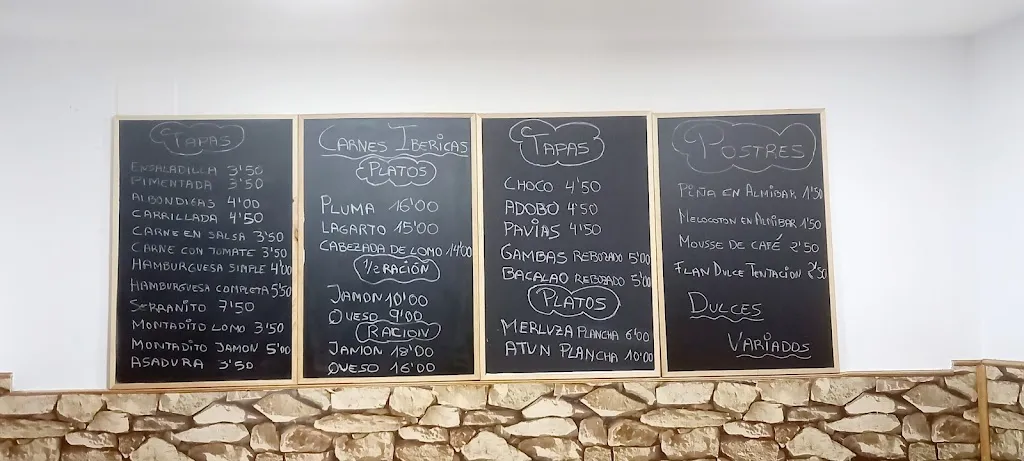 TAPAS
ENSALADILLA 3'50
PIMENTADA 3'50
ALBONDIGAS 4'00
CARRILLADA 4'50
CARNE EN SALSA 3'50
CARNE CON TOMATE 3'50
HAMBURGUESA SIMPLE 4'00
HAMBURGUESA COMPLETA 5'50
SERRANITO 7'50
MONTADITO LOMO 3'50
MONTADITO JAMON 5'00
ASADURA 3'50
CARNES IBERICAS
PLATOS
PLUMA 16'00
LAGARTO 15'00
CABEZADA DE LOMO 14'00
1/2 RACIÓN
JAMON 10'00
QUESO 9'00
RACION
JAMON 18'00
QUESO 16'00
TAPAS
CHOCO 4'50
ADOBO 4'50
PAVIAS 4'50
GAMBAS REBOZADO 5'00
BACALAO REBOZADO 5'00
PLATOS
MERLVZA PLANCHA 6'00
ATVN PLANCHA 10'00
POSTRES
PIÑA EN ALMIBAR 1'50
MELOCOTON EN ALMIBAR 1'50
MOUSSE DE CAFÉ 2'50
FLAN DULCE TENTACION 2'50
DULCES
VARIADOS